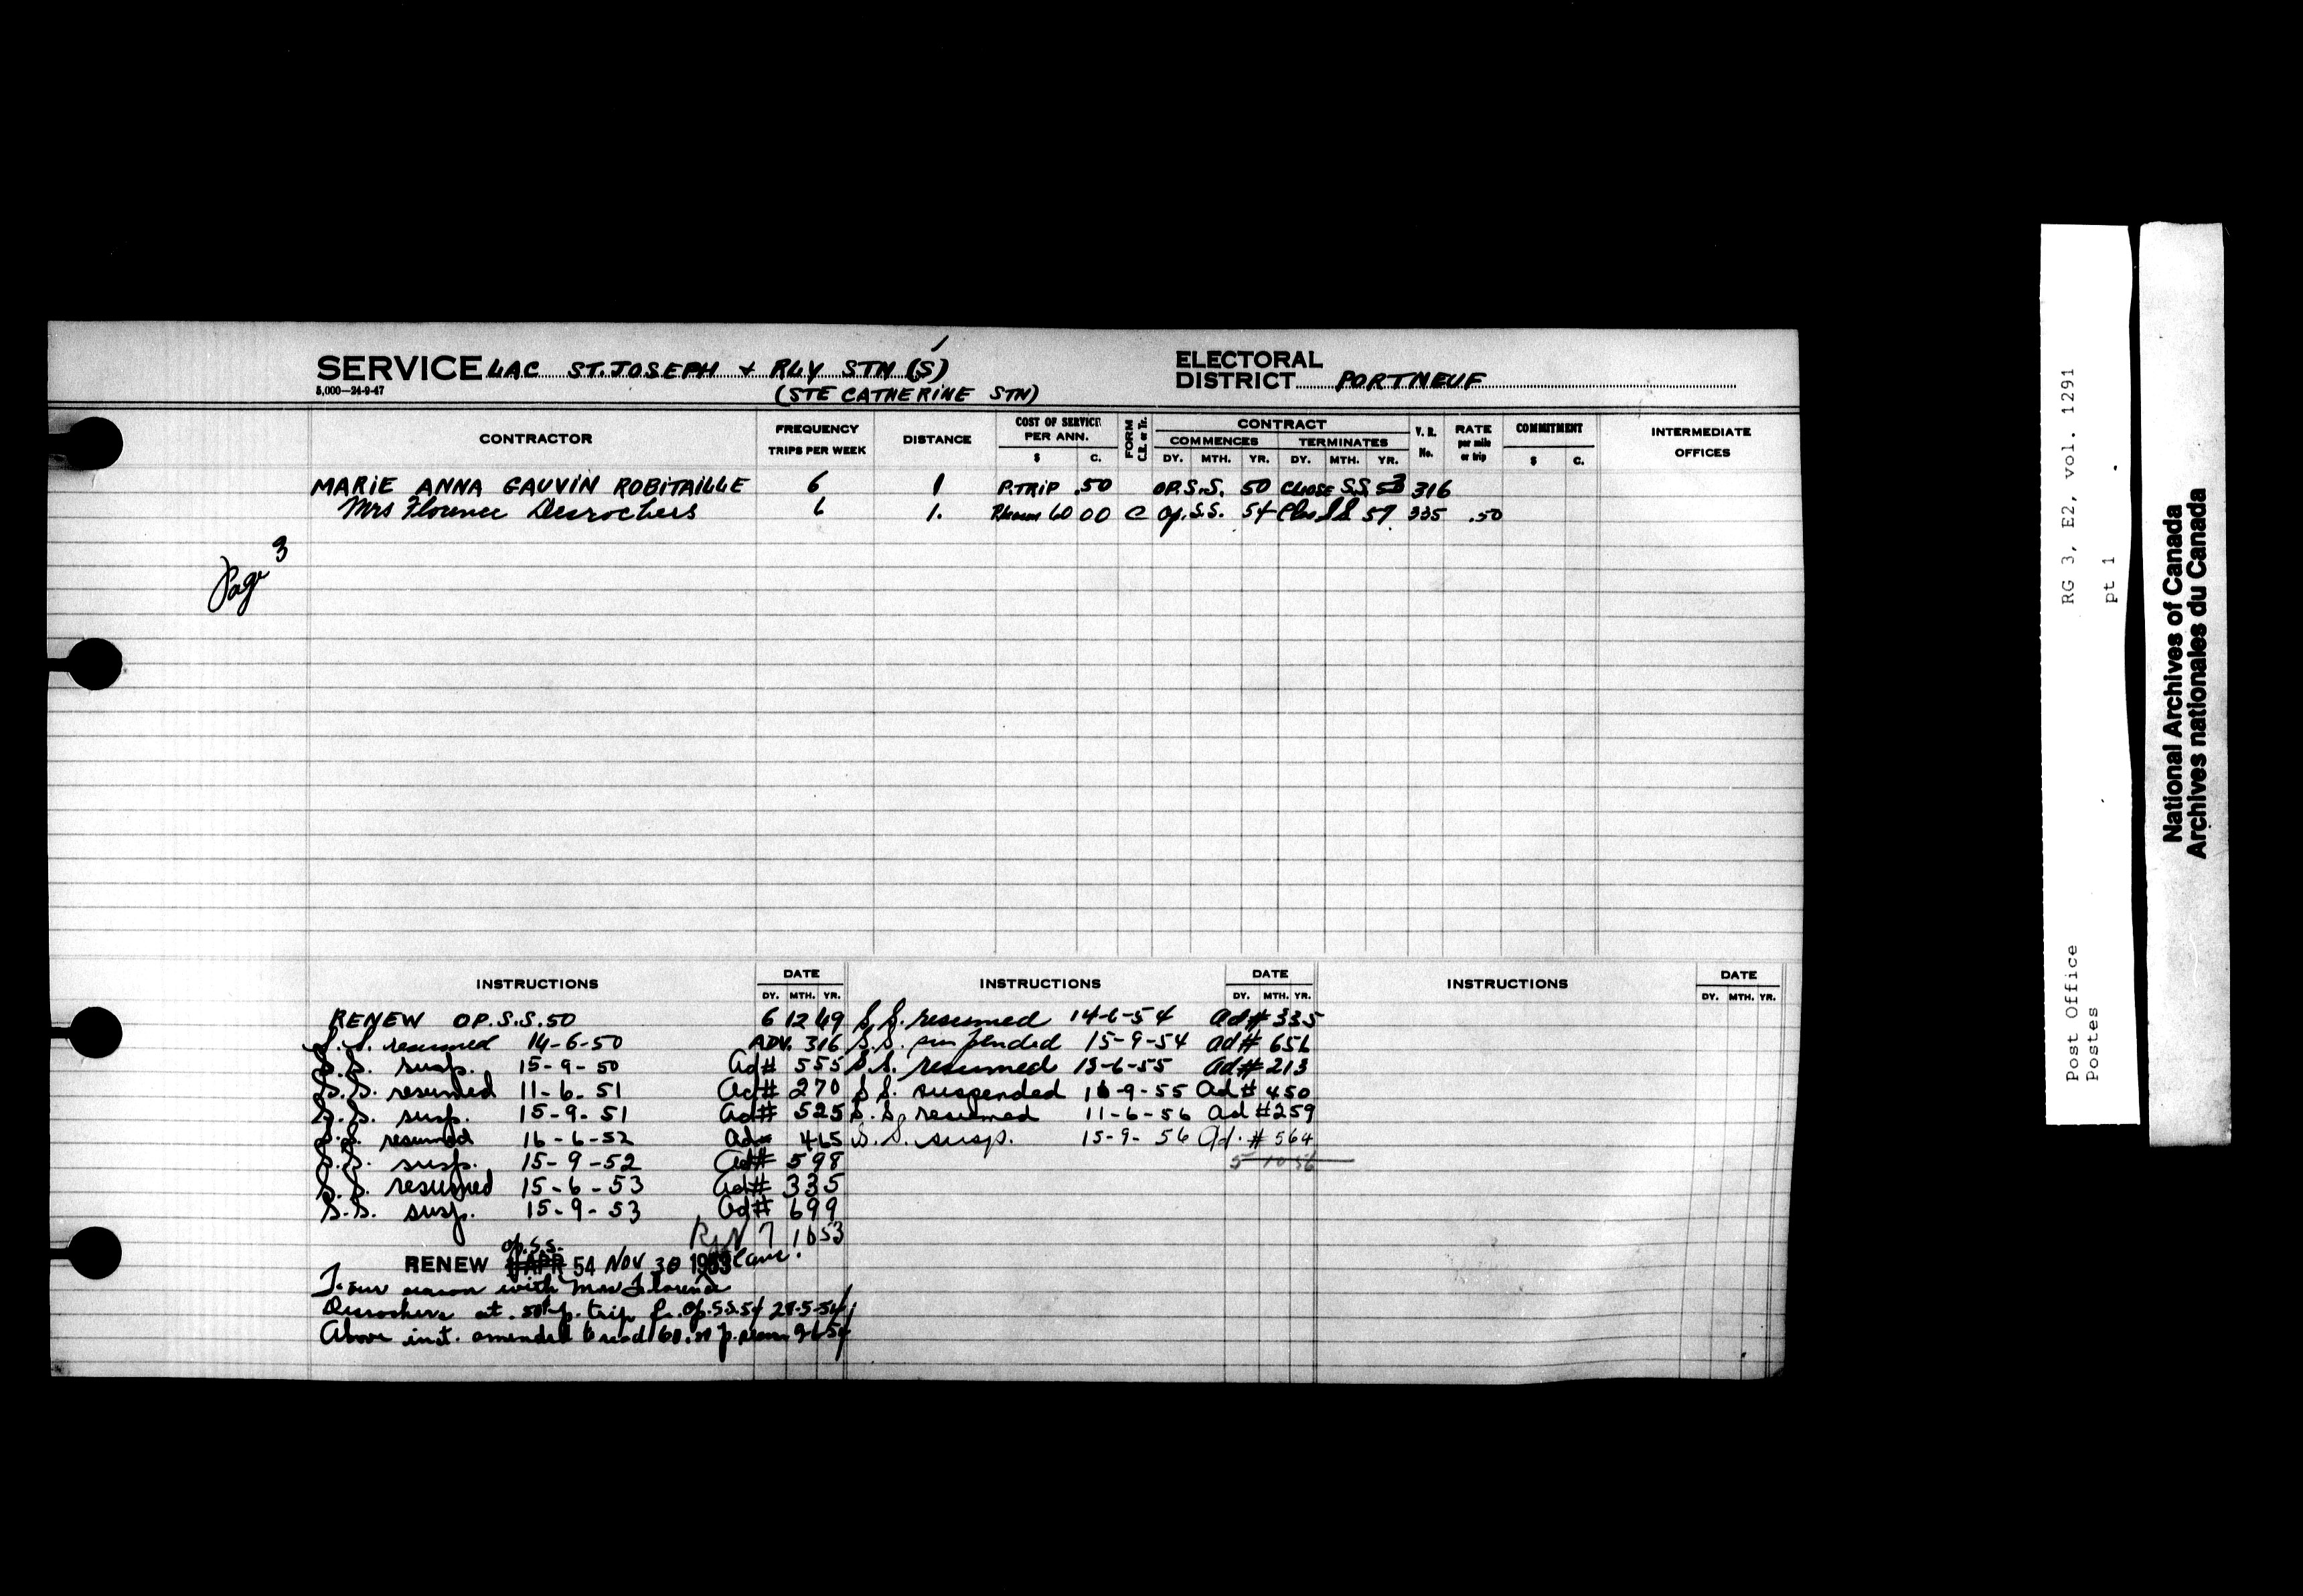 SERVICE LAC ST. JOSEPH & RLY STN (S)
(STE CATHERINE STN)
5,000—24-9-47
ELECTORAL DISTRICT PORTNEUF
CONTRACTOR FREQUENCY TRIPS PER WEEK DISTANCE COST OF SERVICE PER ANN. $ C. FORM C.E. or Tr. CONTRACT COMMENCES DY. MTH. YR. TERMINATES DY. MTH. YR. V. R. No. RATE per mile or trip COMMITMENT $ C. INTERMEDIATE OFFICES
MARIE ANNA GAUVIN ROBITAILLE 6 1 P.TRIP .50 OP.S.S. 50 CLOSE S.S. 53 316
Mrs Florence Desrochers 6 1. 60 00 C Op.S.S. 54 Clos S.S 57. 335 .50
Page 3
INSTRUCTIONS DATE DY. MTH. YR. INSTRUCTIONS DATE DY. MTH. YR. INSTRUCTIONS DATE DY. MTH. YR.
RENEW OP.S.S.50 6 12 49
S.S. resumed 14-6-50 ADV. 316
S.S. susp. 15-9-50 Ad# 555
S.S. resumed 11-6-51 Ad# 270
S.S. susp. 15-9-51 Ad# 525
S.S. resumed 16-6-52 Ad# 465
S.S. susp. 15-9-52 Ad# 598
S.S. resumed 15-6-53 Ad# 335
S.S. susp. 15-9-53 Ad# 699
7 10 53
op.s.s.
RENEW 1 APR 54 NOV 30 1953
season with Mrs Florence
Desrochers at .50 p. trip fr. Op.S.S.54 28-5-54
Above inst. amended to read 60.00 p. 9 6 54
S.S. resumed 14-6-54 Ad# 335
S.S. suspended 15-9-54 Ad# 656
S.S. resumed 13-6-55 Ad# 213
S.S. suspended 16-9-55 Ad# 450
S.S. resumed 11-6-56 Ad #259
S.S. susp. 15-9-56 Ad. # 564
5 10 56
Post Office RG 3, E2, vol. 1291
Postes pt 1
National Archives of Canada
Archives nationales du Canada